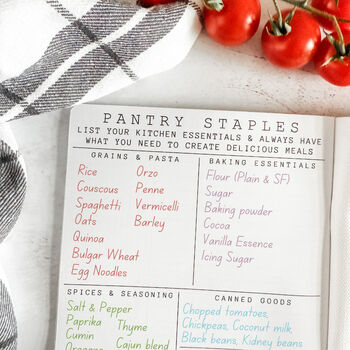 PANTRY STAPLES
LIST YOUR KITCHEN ESSENTIALS & ALWAYS HAVE
WHAT YOU NEED TO CREATE DELICIOUS MEALS
GRAINS & PASTA
Rice Orzo
Couscous Penne
Spaghetti Vermicelli
Oats Barley
Quinoa
Bulgar Wheat
Egg Noodles
BAKING ESSENTIALS
Flour (Plain & SF)
Sugar
Baking powder
Cocoa
Vanilla Essence
Icing Sugar
SPICES & SEASONING
Salt & Pepper
Paprika Thyme
Cumin Cajun blend
Oregano
CANNED GOODS
Chopped tomatoes,
Chickpeas, Coconut milk,
Black beans, Kidney beans